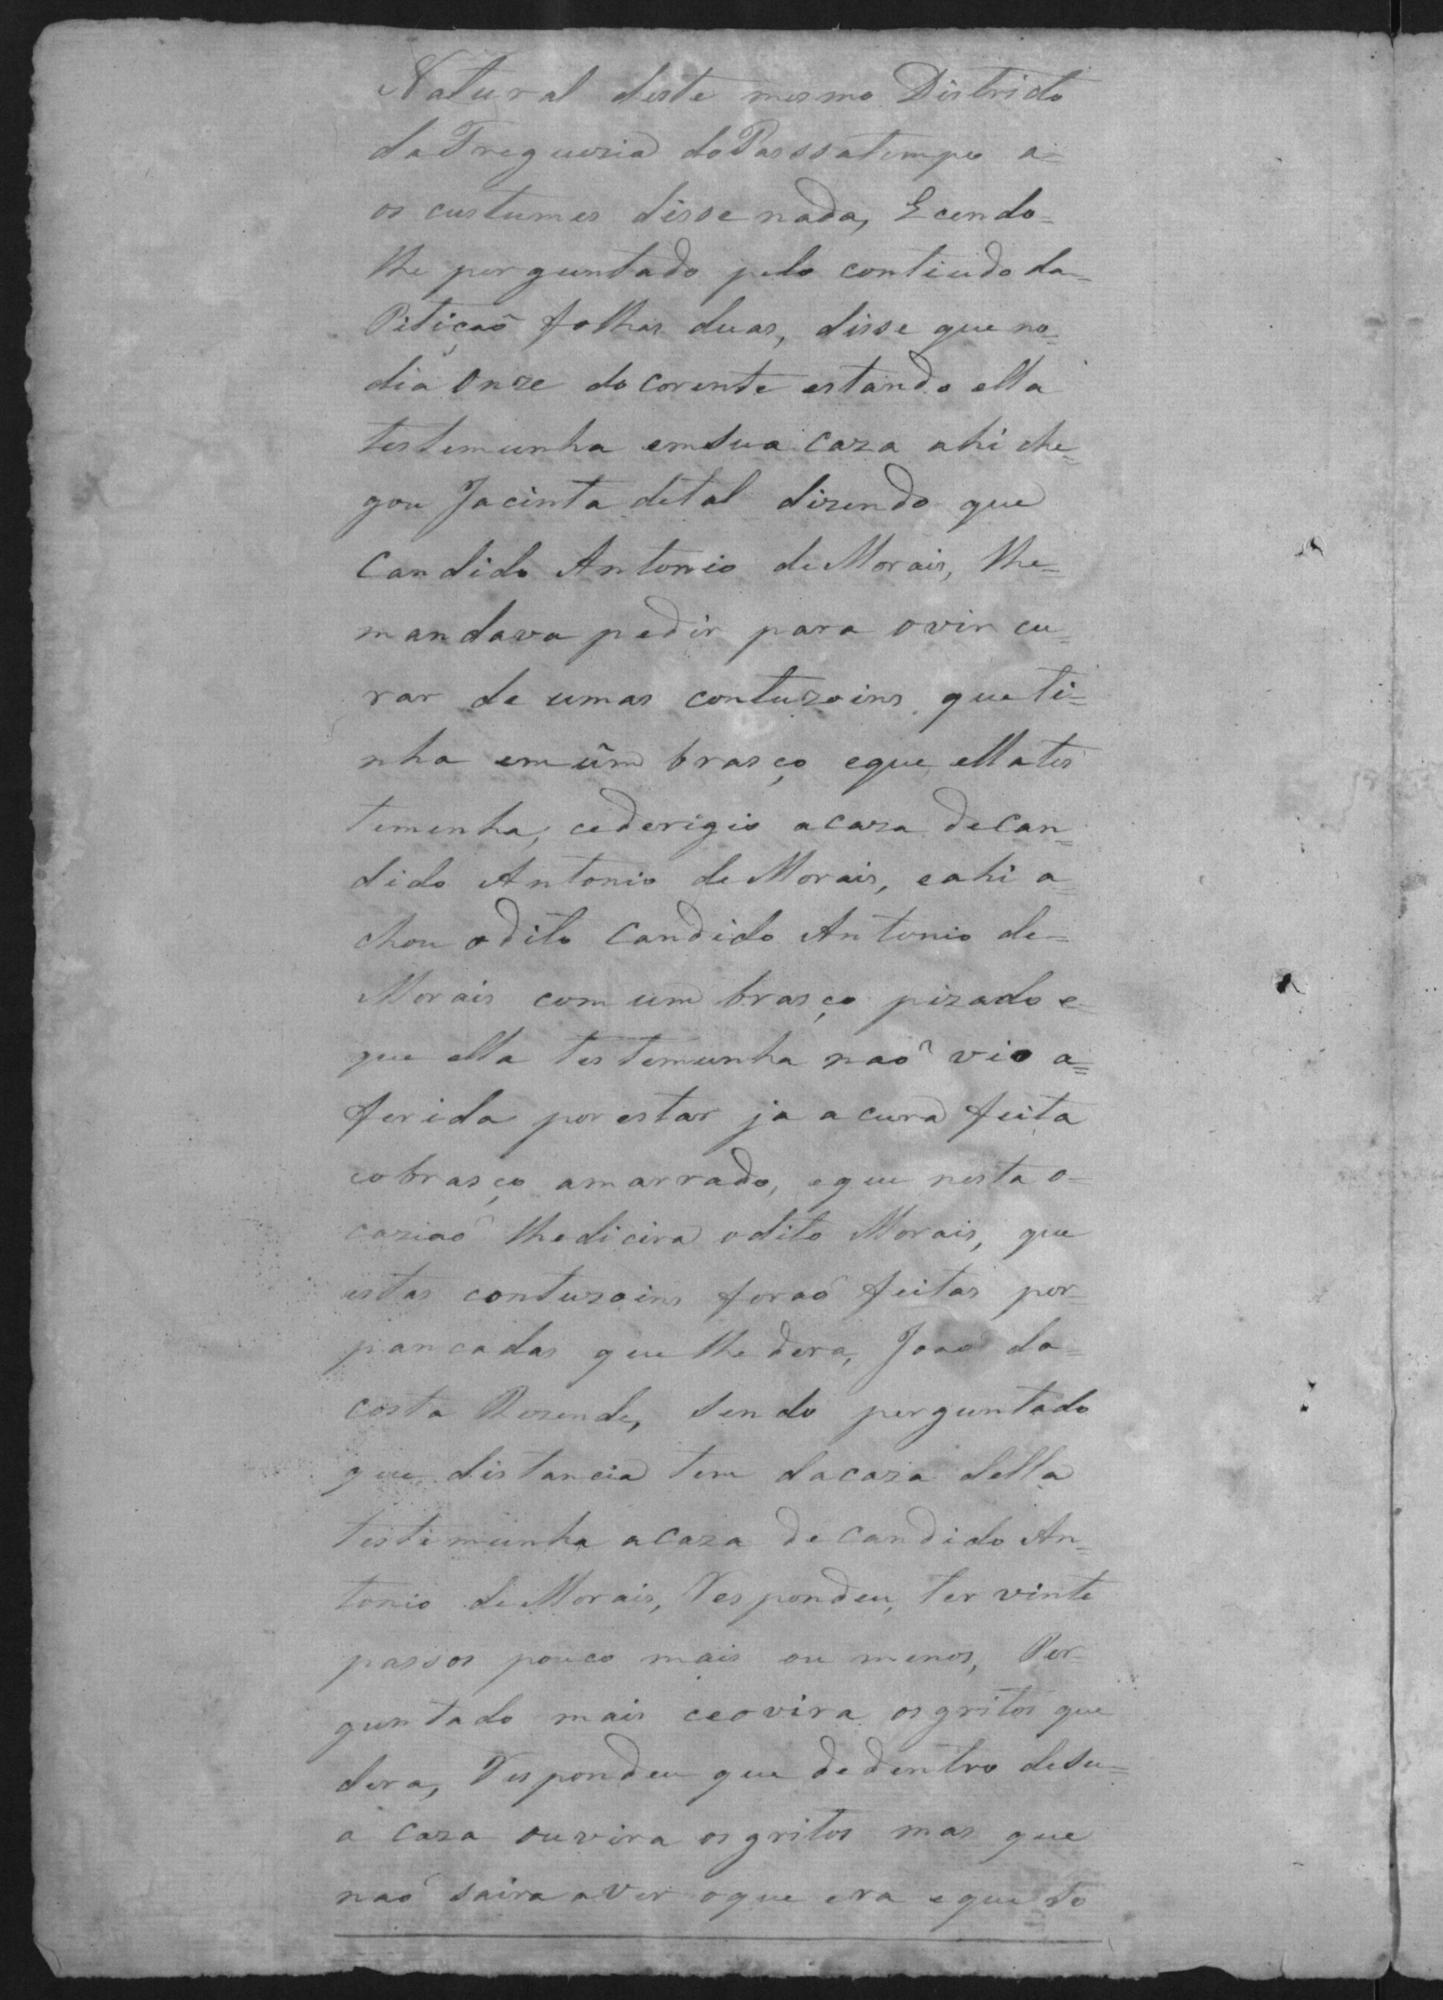 Natural deste mesmo Districto
da Fregueria do Passatempo a=
os custumes disse nada, E cendo=
lhe perguntado pelo contiudo da=
Pitiçaõ folhas duas, disse que no=
dia Onze do corente estando ella
testemunha em sua caza ahi che=
gou Jacinta de tal dizendo que
Candido Antonio de Morais, lhe=
mandava pedir para o vir cu=
rar de umas contuzoins que ti=
nha em ũm brasço e que ella tes
temenha, ce derigio a caza de Can=
dido Antonio de Morais, e ahi a=
chou o dito Candido Antonio de=
Morais com um brasço pizado e=
que ella testemunha naõ vio a=
ferida por estar ja a cura feita
e o brasço amarrado, e que nesta o=
caziaõ lhe dicira o dito Morais, que
estas contuzoins foraõ feitas por=
pancadas que lhe dera, Joaõ da=
costa Rezende, sendo perguntado
que distancia tem da caza della
testimunha a caza de Candido An=
tonio de Morais, Respondeu, ter vinte
passos pouco mais ou menos, Per=
guntado mais ce ovira os gritos que
dera, Respondeu que de dentro de su=
a caza ouvira os gritos mas que
naõ saira a ver o que era e que do